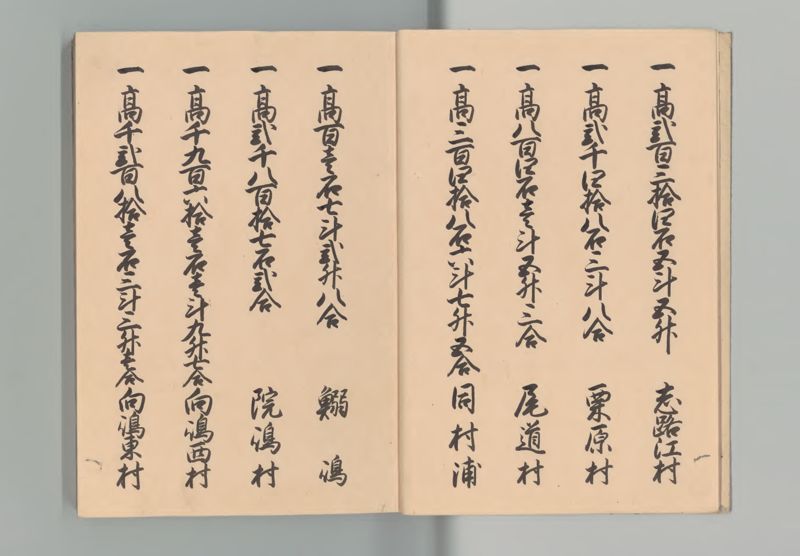 一 高弐百三拾四石五斗五升 志路江村
一 高弐千四拾八石三斗八合 栗原村
一 高八百四石壱斗五升三合 尾道村
一 高三百四拾八石六斗七升五合 同村浦
一 高百壱石七斗弐升八合 鰯嶋
一 高弐千八百拾七石弐合 院嶋村
一 高千九百六拾壱石壱斗九升七合 向嶋西村
一 高千弐百八拾壱石三斗三升壱合 向嶋東村